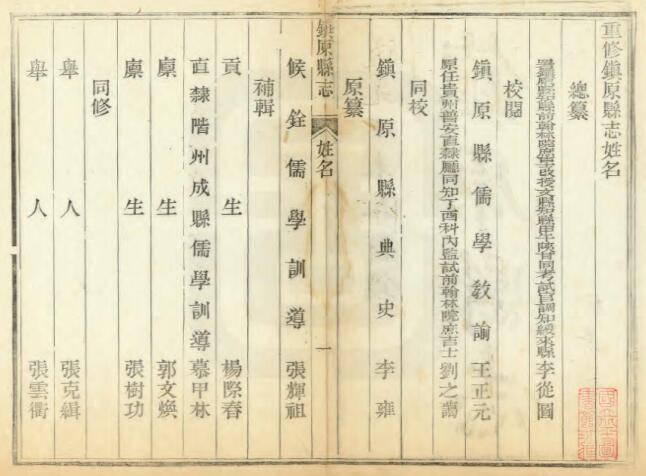 重修鎮原縣志姓名
總纂
署鎮原縣知縣前翰林院庶吉士改授文縣知縣甲午陝甘同考試官調知綏來縣李從圖
校閱
鎮原縣儒學敎諭王正元
原任貴州普安直隸廳同知丁酉科內監試前翰林院庶吉士劉之藹
同校
鎮原縣典史李雍
原纂
鎮原縣志 姓名 一
候銓儒學訓導張輝祖
補輯
貢生楊際春
直隸階州成縣儒學訓導慕甲林
廩生郭文煥
廩生張樹功
同修
舉人張克緝
舉人張雲衢